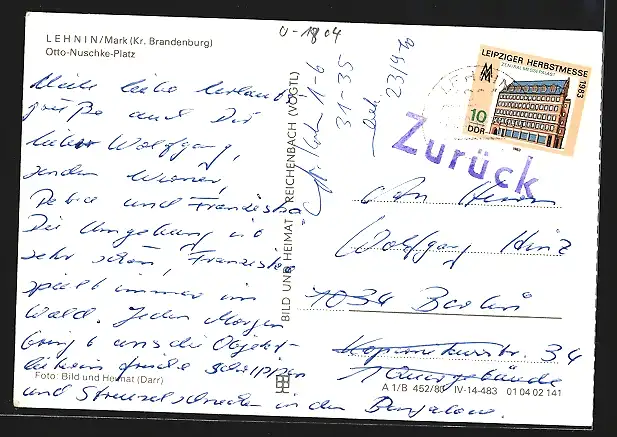 LEHNIN/Mark (Kr. Brandenburg)
Otto-Nuschke-Platz
liebe
Grüße auf Dir
lieber Wolfgang,
senden Wiener,
Petra und Franziska
Die Umgebung ist
sehr schön, Franziska
spielt immer im
Wald. Jeden Morgen
bringt uns die Objekt-
leiterin frische Schrippen
und Streuselschnecken in den Bungalow.
Foto: Bild und Heimat (Darr)
BILD UND HEIMAT REICHENBACH (VOGTL)
U-1804
1-6
31-35
23/9
LEHNIN
LEIPZIGER HERBSTMESSE 1983
ZENTRALMESSEPALAST
MM
10
DDR
1983
Zurück
An Herrn
Wolfgang Hinz
1034 Berlin
Kopernikusstr. 34
Quergebäude
A 1/B 452/80 IV-14-483 01 04 02 141